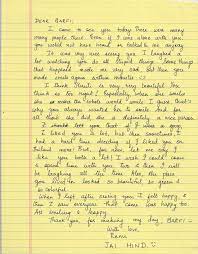 DEAR BARC!,
I came to see you today. There were many
many people that even if I was alone with you,
you would not have heard or talked to me anyway.
It was very nice seeing you. I laughed a
lot watching you do all stupid things. Some things
that happened made me very sad, but then you
made smile again within minutes
I think is very very beautiful. You
think so too right! Hopefully, when she smiles
she the whole world smile. I guess that's
why you always wanted her to smile. And for
all that she did, she is definitely a nice person.
I should tell you that if you were a guy,
I liked you a lot, but then sometimes I
had a hard time deciding if I liked you or
more! But for, also, let me to say I
like you both a lot! I wish I could come &
spend time with you two & then I will
be laughing all the time. Also the place
you looked so beautiful & green &
so colorful.
When I left after seeing you I felt happy &
then I saw everyone that came was happy too.
All smiling & happy.
Thank you, for making my day, BARC!
With love,
Rami
JAI HIND